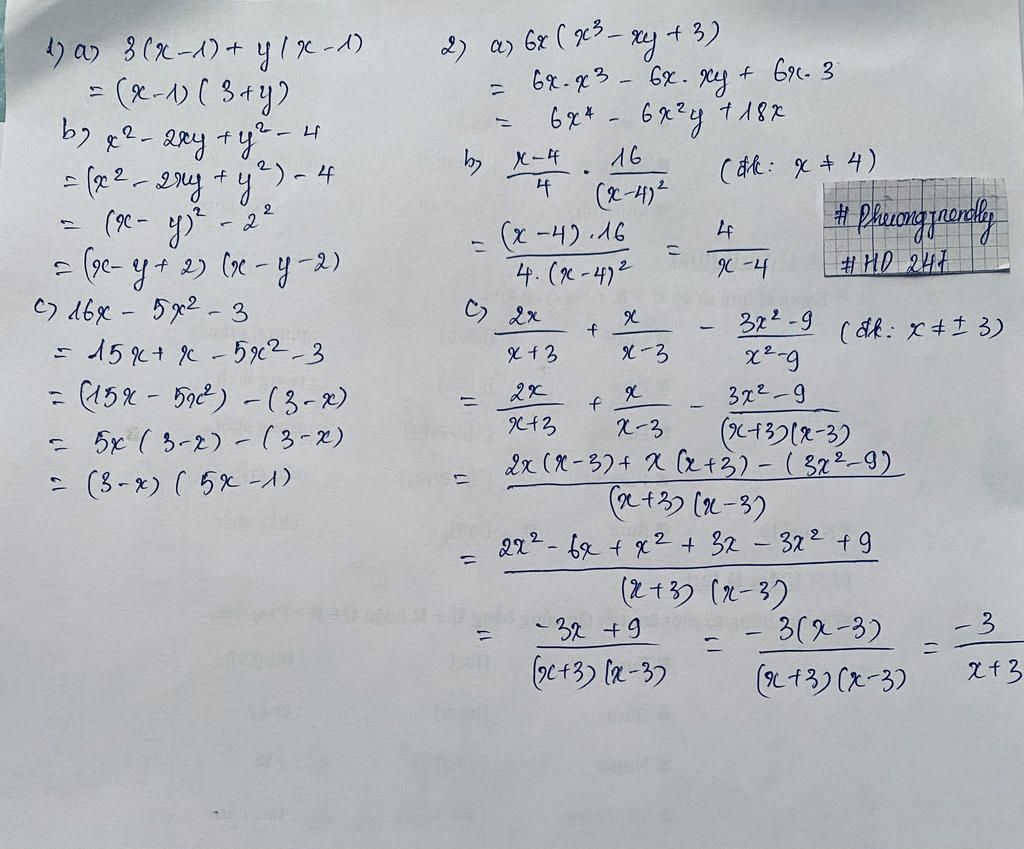 1) a) 3(x-1) + y(x-1)
= (x-1)(3+y)
b) x² - 2xy + y² - 4
= (x² - 2xy + y²) - 4
= (x - y)² - 2²
= (x - y + 2) (x - y - 2)
c) 16x - 5x² - 3
= 15x + x - 5x² - 3
= (15x - 5x²) - (3 - x)
= 5x (3 - x) - (3 - x)
= (3 - x) (5x - 1)
2) a) 6x (x³ - xy + 3)
= 6x . x³ - 6x . xy + 6x . 3
= 6x⁴ - 6x²y + 18x
b) (x-4)/4 . 16/(x-4)² (đk: x ≠ 4)
= ((x-4) . 16)/(4. (x-4)²) = 4/(x-4)
# Phuongfrendly
# HD 247
c) 2x/(x+3) + x/(x-3) - (3x²-9)/(x²-9) (đk: x ≠ ± 3)
= 2x/(x+3) + x/(x-3) - (3x²-9)/((x+3)(x-3))
= (2x(x-3) + x(x+3) - (3x²-9))/((x+3)(x-3))
= (2x² - 6x + x² + 3x - 3x² + 9)/((x+3)(x-3))
= (-3x + 9)/((x+3)(x-3)) = (-3(x-3))/((x+3)(x-3)) = -3/(x+3